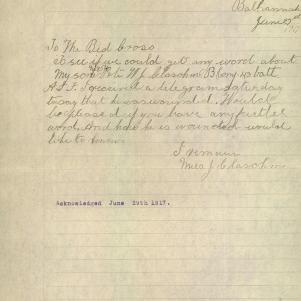 Ballarat
June
To The Red Cross
To see if we could get any word about
My son Pte W J Clasohm B Coy 10 batt
A I F I received a telegram Saturday
to say that he was wounded. Would
be pleased if you have any further
word. And how he is wounded would
like to know
I remain
Mrs J. Clasohm
Acknowledged June 29th 1917.